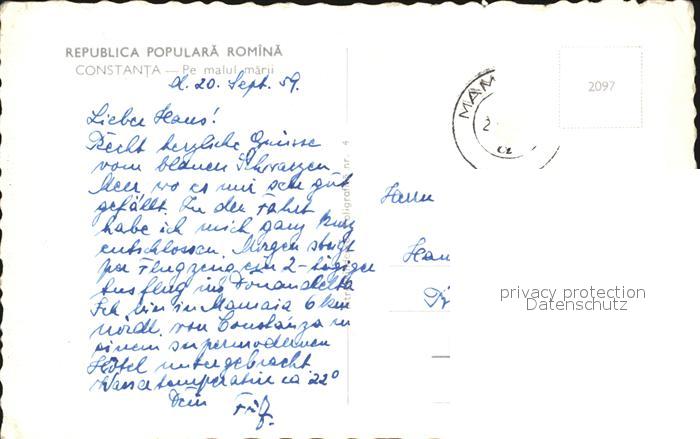 REPUBLICA POPULARĂ ROMÎNĂ
CONSTANȚA — Pe malul mării
d. 20. Sept. 59.
Lieber Hans!
Recht herzliche Grüsse
vom blauen Schwarzen
Meer wo es mir sehr gut
gefällt. Zu der Fahrt
habe ich mich ganz kurz
entschlossen. Morgen steigt
per Flugzeug ein 2-tägiger
Ausflug ins Donaudelta
Ich bin in Mamaia 6 km
nördl. von Constanza in
einem supermodernen
Hotel untergebracht
Wassertemperatur ca 22°
Dein
MAM
2097
Herrn
Han
privacy protection
Datenschutz